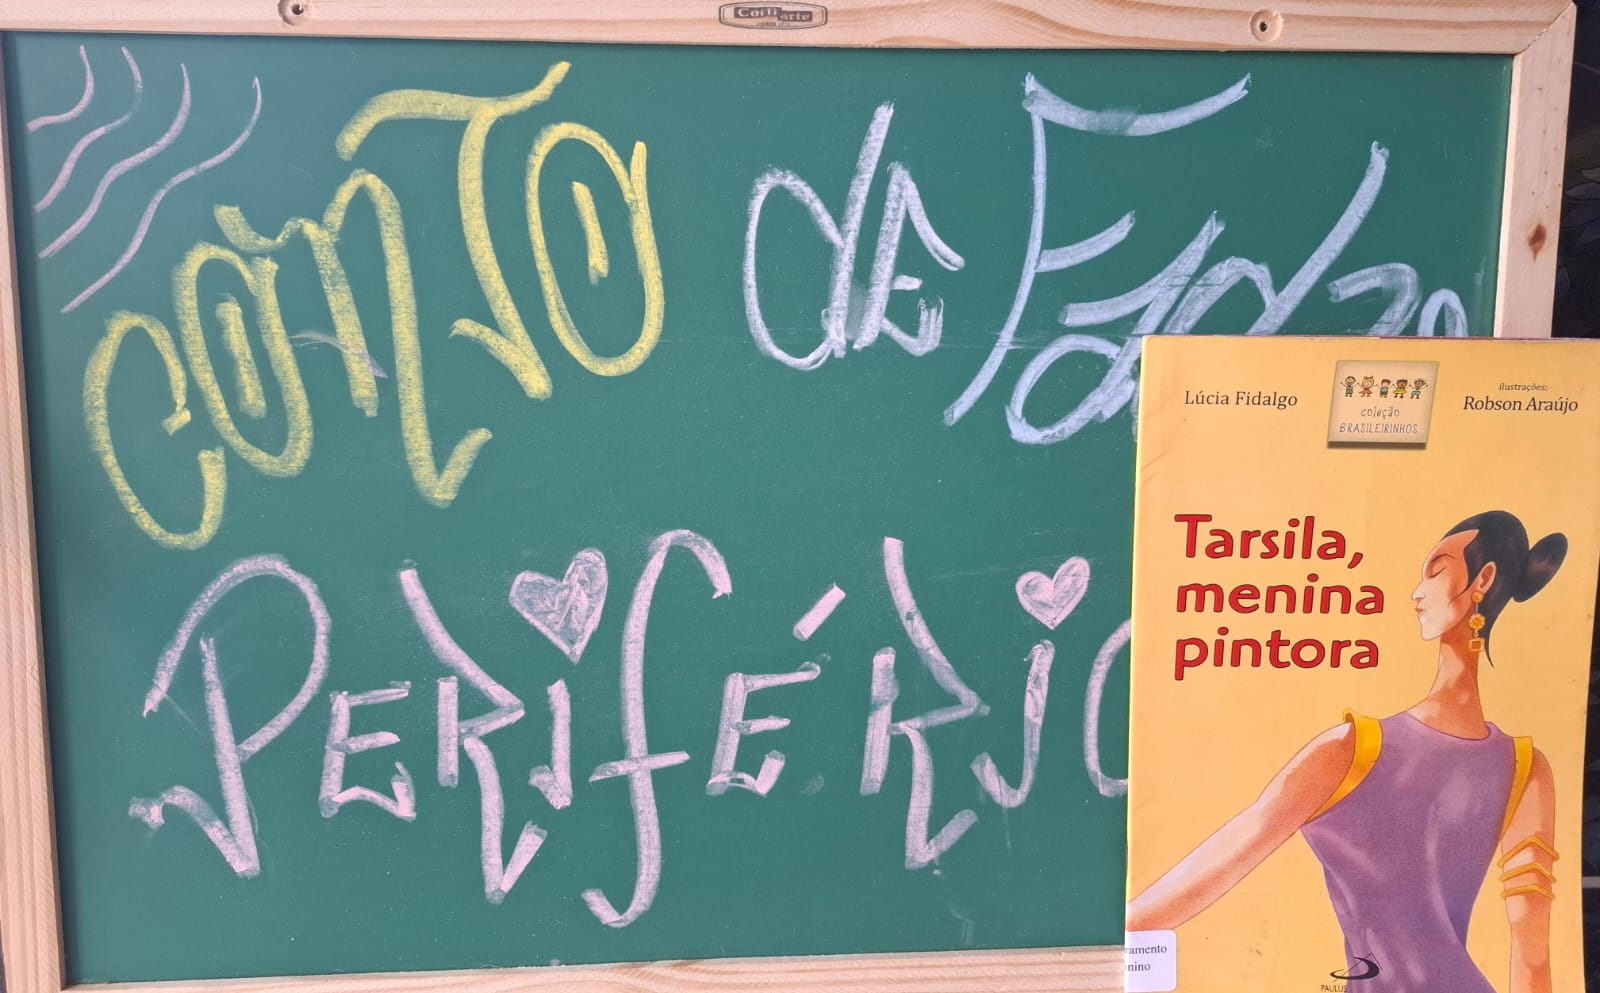 CONTO de
PERIFÉRIC
Lúcia Fidalgo
coleção
BRASILEIRINHOS
ilustrações:
Robson Araújo
Tarsila,
menina
pintora
ramento
nino
PAULUS